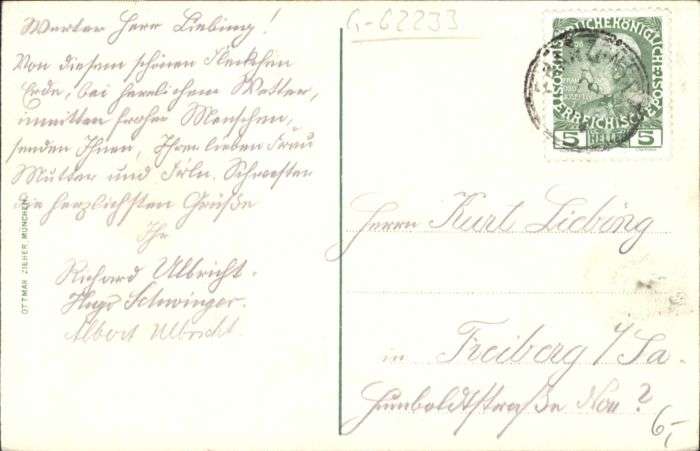 Werter Herr Liebing!
Von diesem schönen Fleckchen
Erde, bei herrlichem Wetter,
inmitten froher Menschen,
senden Ihnen, Ihrer lieben Frau
Mutter und Frln. Schwester
die herzlichsten Grüße
Ihr
Richard Ulbricht.
Hugo Schwinger.
Albert Ulbricht.
OTTMAR ZIEHER, MÜNCHEN
G-62233
KÖNIGLICHE
5 HELLER 5
Herrn Kurt Liebing
in Freiberg i/Sa.
Humboldtstraße Nou?
6,-